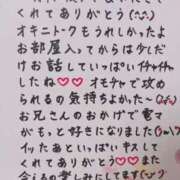 くれてありがとう(^^)
オキニトークもうれしかったよ
お部屋入ってからは少しだけ
お話していっぱいイチャイチャ
したね♡♡オモチャで攻め
られるの気持ちよかた〜
お兄さんのおかげで電マ
がもっと好きになりました
イッたあといっぱいキスして
くれてありがとう♡♡また
会えるの楽しみにしてます